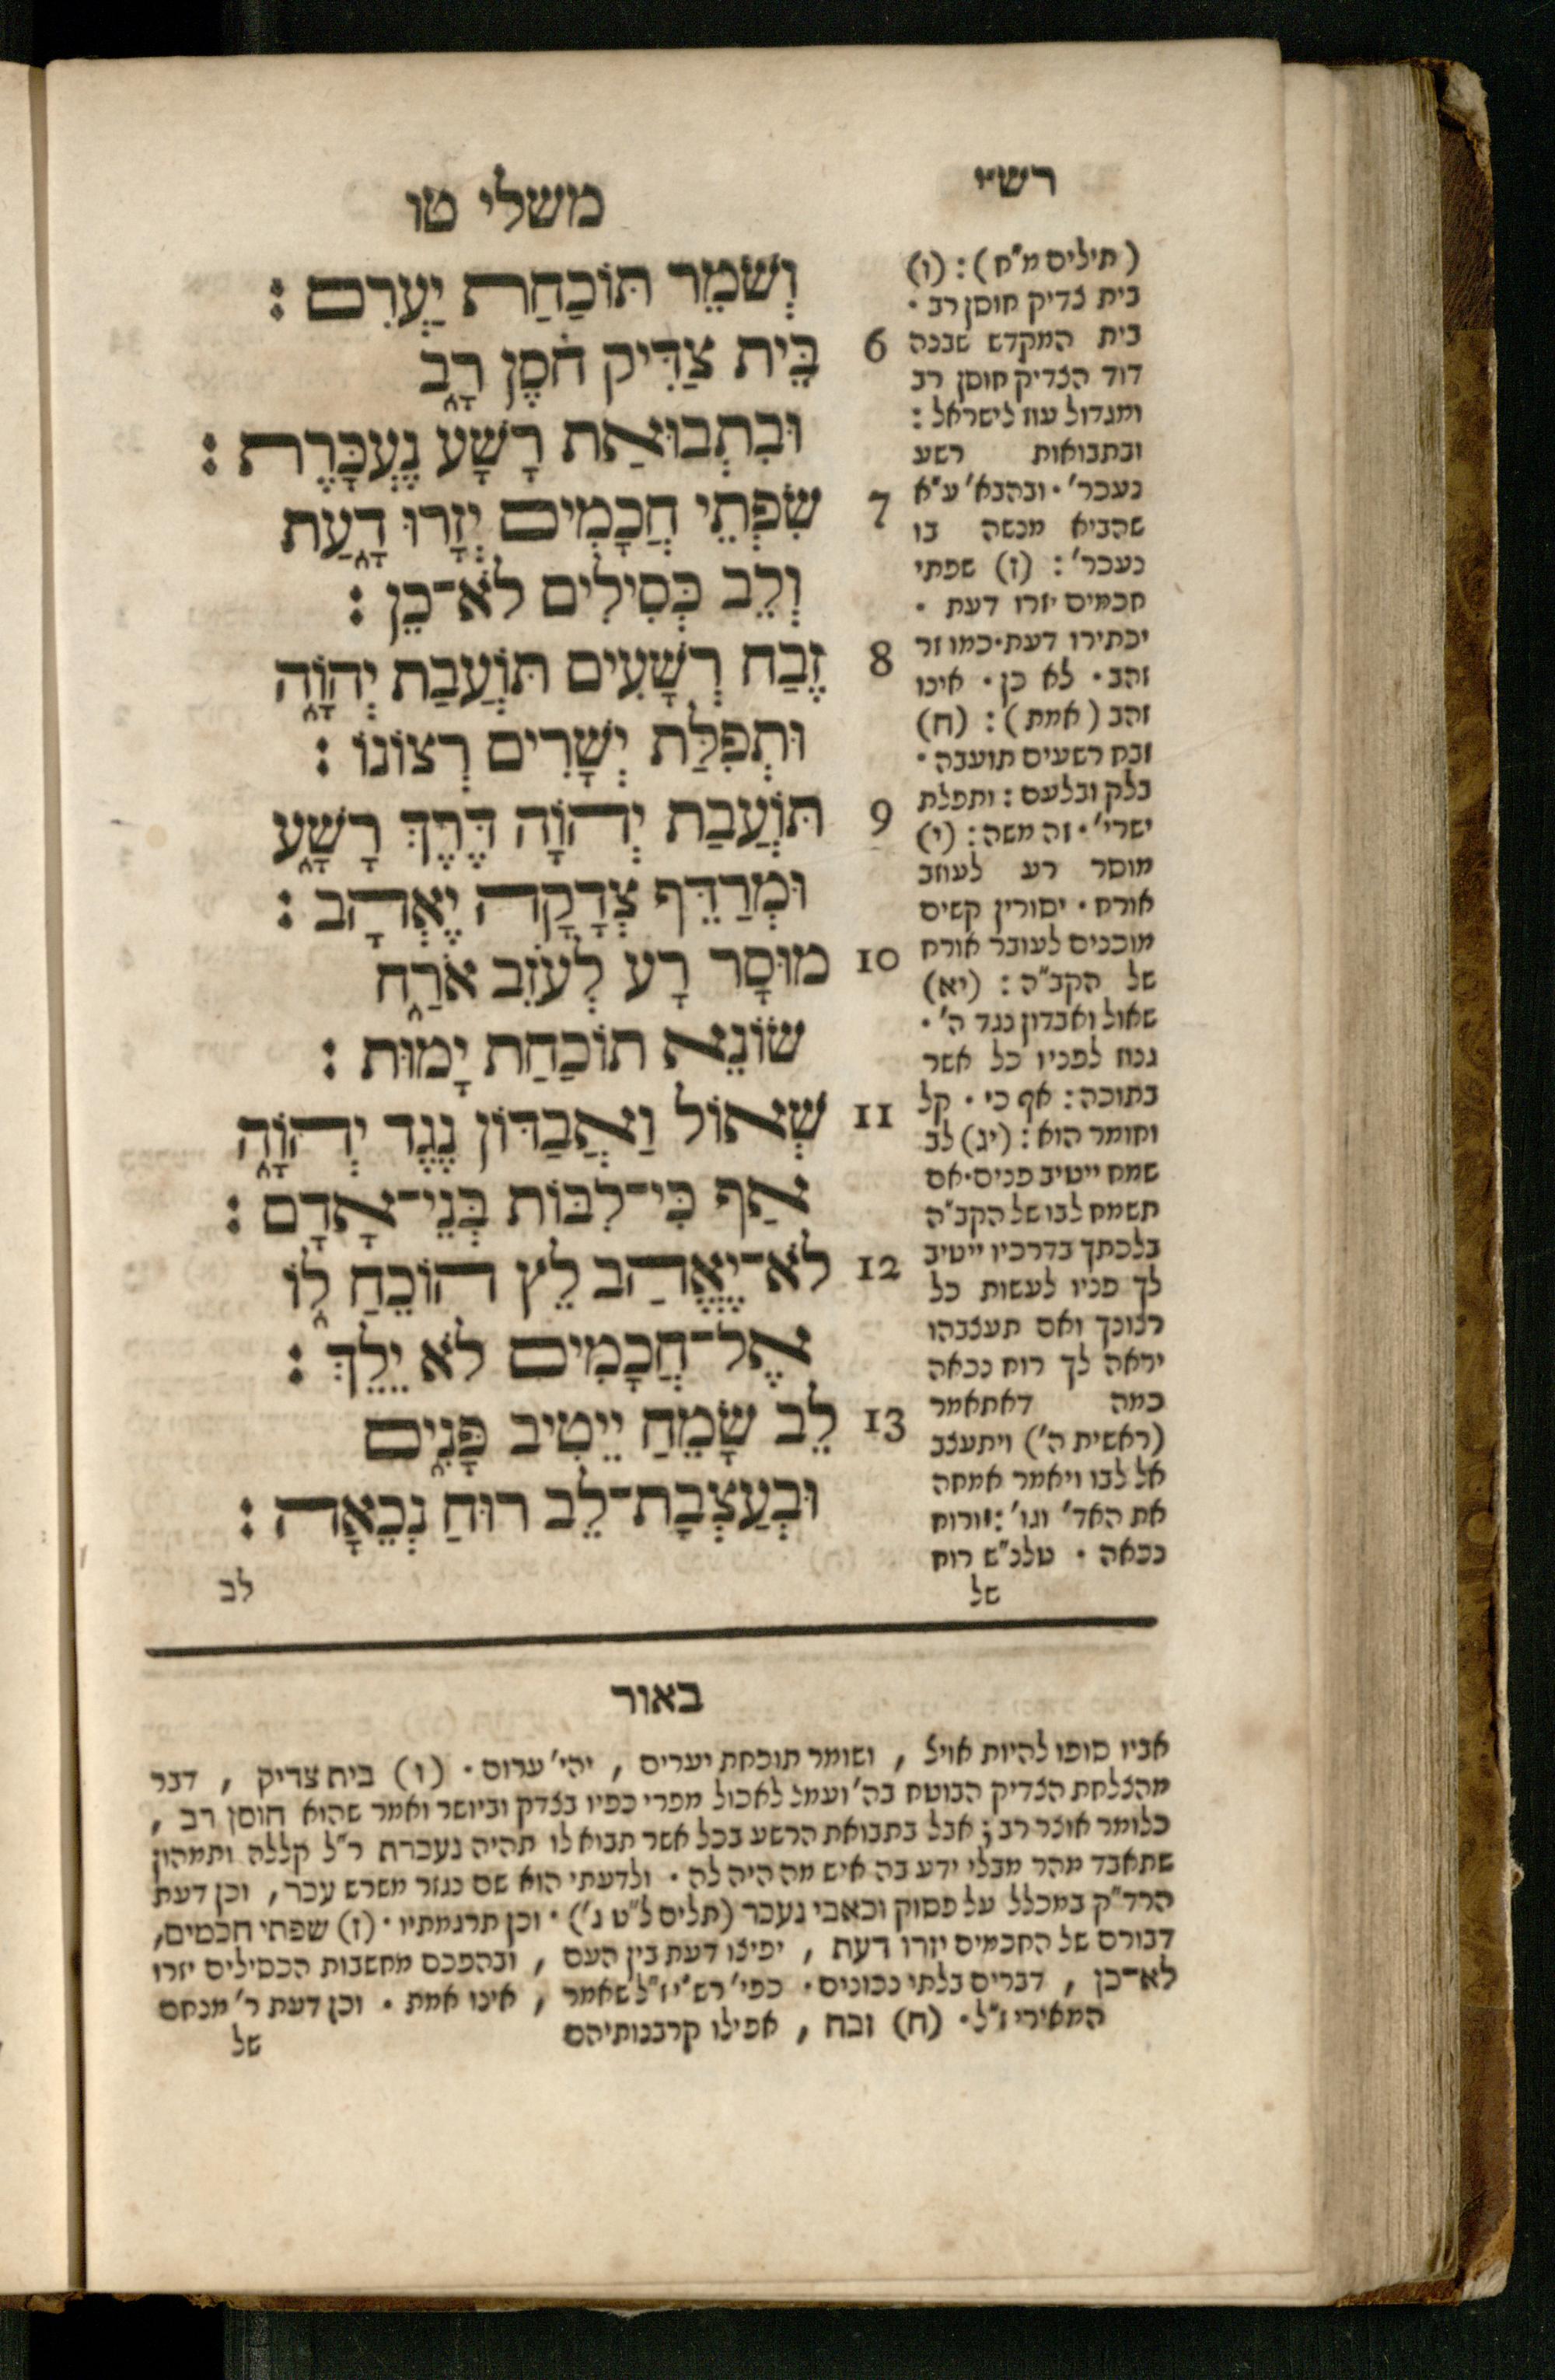 רש״י
(תילים מ"ח): (ו)
בית צדיק חוסן רב ·
בית המקדש שבנה
דוד הצדיק חוסן רב
ומגדול עוז לישראל :
ובתבואות רשע
נעכר' · ובהבא' ע"א
שהביא מנשה בו
נעכר' : (ז) שפתי
חכמים יזרו דעת ·
יכתירו דעת · כמו זר
זהב · לא כן · אינו
זהב (אמת) : (ח)
זבח רשעים תועבה ·
בלק ובלעם : ותפלת
ישרי' · זה משה : (י)
מוסר רע לעוזב
אורח · יסורין קשים
מוכנים לעובר אורח
של הקב"ה : (יא)
שאול ואבדון נגד ה' ·
גנוז לפניו כל אשר
בתוכה : אף כי · קל
וחומר הוא : (יג) לב
שמח ייטיב פנים · אם
תשמח לבו של הקב"ה
בלכתך בדרכיו ייטיב
לך פניו לעשות כל
רצונך ואם תעצבהו
יראה לך רוח נכאה
כמה דאתאמר
(ראשית ה') ויתעצב
אל לבו ויאמר אמחה
את האד' וגו' : ורוח
נכאה · טלנ"ש רוח
של
משלי טו
וְשֹׁמֵר תּוֹכַחַת יַעְרִם :
6 בֵּית צַדִּיק חֹסֶן רָב
וּבִתְבוּאַת רָשָׁע נֶעְכָּרֶת :
7 שִׂפְתֵי חֲכָמִים יְזָרוּ דָעַת
וְלֵב כְּסִילִים לֹא־כֵן :
8 זֶבַח רְשָׁעִים תּוֹעֲבַת יְהוָֹה
וּתְפִלַּת יְשָׁרִים רְצוֹנוֹ :
9 תּוֹעֲבַת יְהוָֹה דֶּרֶךְ רָשָׁע
וּמְרַדֵּף צְדָקָה יֶאְהָב :
10 מוּסָר רָע לְעֹזֵב אֹרַח
שׂוֹנֵא תוֹכַחַת יָמוּת :
11 שְׁאוֹל וַאֲבַדּוֹן נֶגֶד יְהוָֹה
אַף כִּי־לִבּוֹת בְּנֵי־אָדָם :
12 לֹא־יֶאֱהַב לֵץ הוֹכֵחַ לוֹ
אֶל־חֲכָמִים לֹא יֵלֵךְ :
13 לֵב שָׂמֵחַ יֵיטִיב פָּנִים
וּבְעַצְּבָת־לֵב רוּחַ נְכֵאָה :
לב
באור
אביו סופו להיות אויל , ושומר תוכחת יערים , יהי' ערום · (ו) בית צדיק , דבר
מהצלחת הצדיק הבוטח בה' ועמל לאכול מפרי כפיו בצדק וביושר ואמר שהוא חוסן רב ,
כלומר אוצר רב ; אבל בתבואת הרשע בכל אשר תבוא לו תהיה נעכרת ר"ל קללה ותמהון
שתאבד מהר מבלי ידע בה איש מה היה לה · ולדעתי הוא שם נגזר משרש עכר , וכן דעת
הרד"ק במכלל על פסוק וכאבי נעכר (תלים ל"ט ג') · וכן תרגמתיו · (ז) שפתי חכמים,
דבורם של החכמים יזרו דעת , יפיצו דעת בין העם , ובהפכם מחשבות הכסילים יזרו
לא־כן , דברים בלתי נכונים · כפי' רש"י ז"ל שאמר , אינו אמת · וכן דעת ר' מנחם
המאירי ז"ל · (ח) זבח , אפילו קרבנותיהם
של